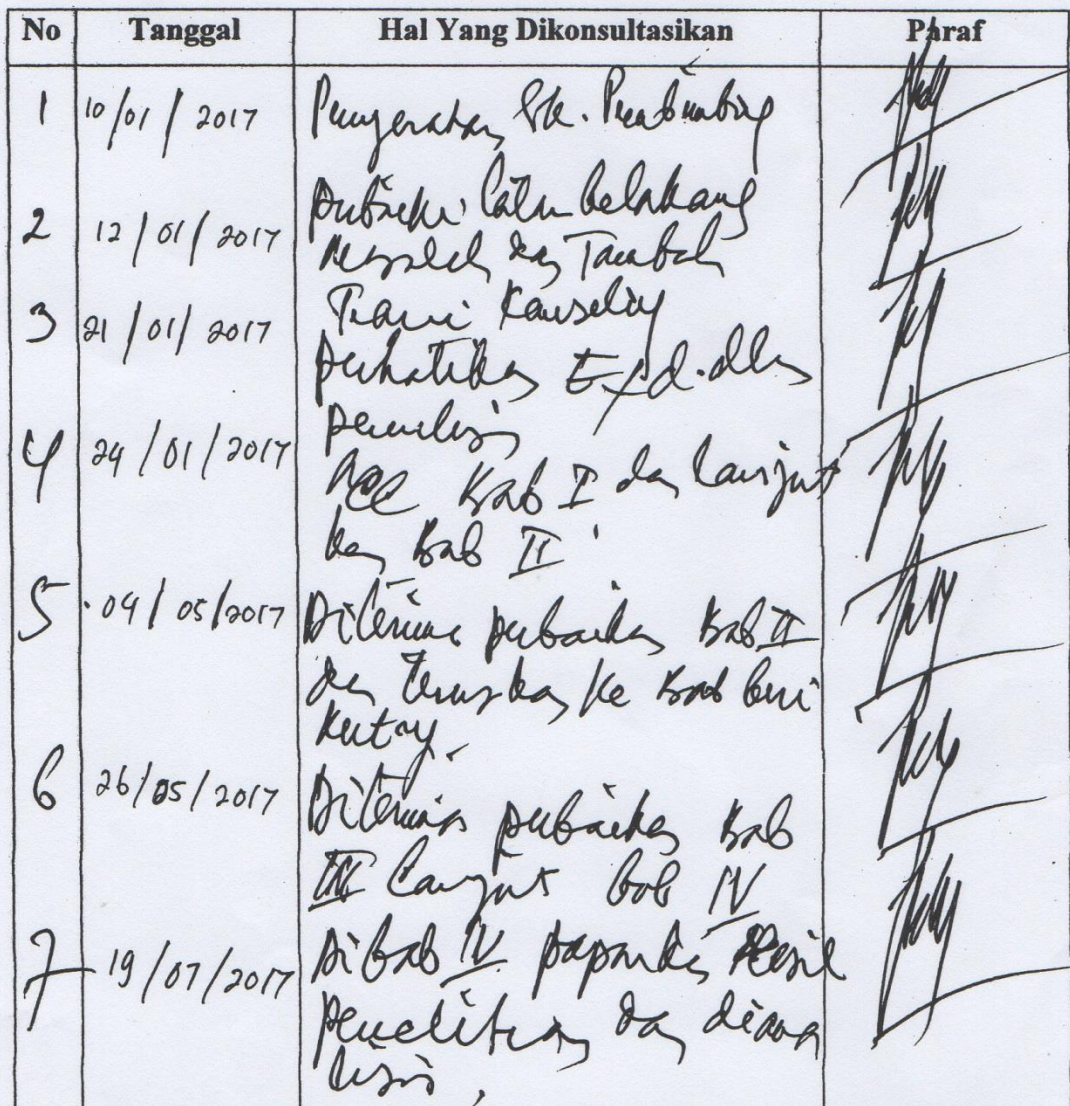 No Tanggal Hal Yang Dikonsultasikan Paraf
1 10/01/2017 Penyerahan SK. Pembimbing
Perbaiki latar belakang
2 12/01/2017 Masalah dan Tambah
3 21/01/2017 Teori Konseling
perhatikan EYD. dlm
penulisan
4 24/01/2017 ACC Bab I dan lanjut
kan Bab II
5 04/05/2017 Diterima perbaikan Bab II
dan teruskan ke Bab beri
kutnya.
6 26/05/2017 Diterima perbaikan Bab
III lanjut bab IV
7 19/07/2017 Di bab IV paparkan Hasil
penelitian dan diana
lisis.